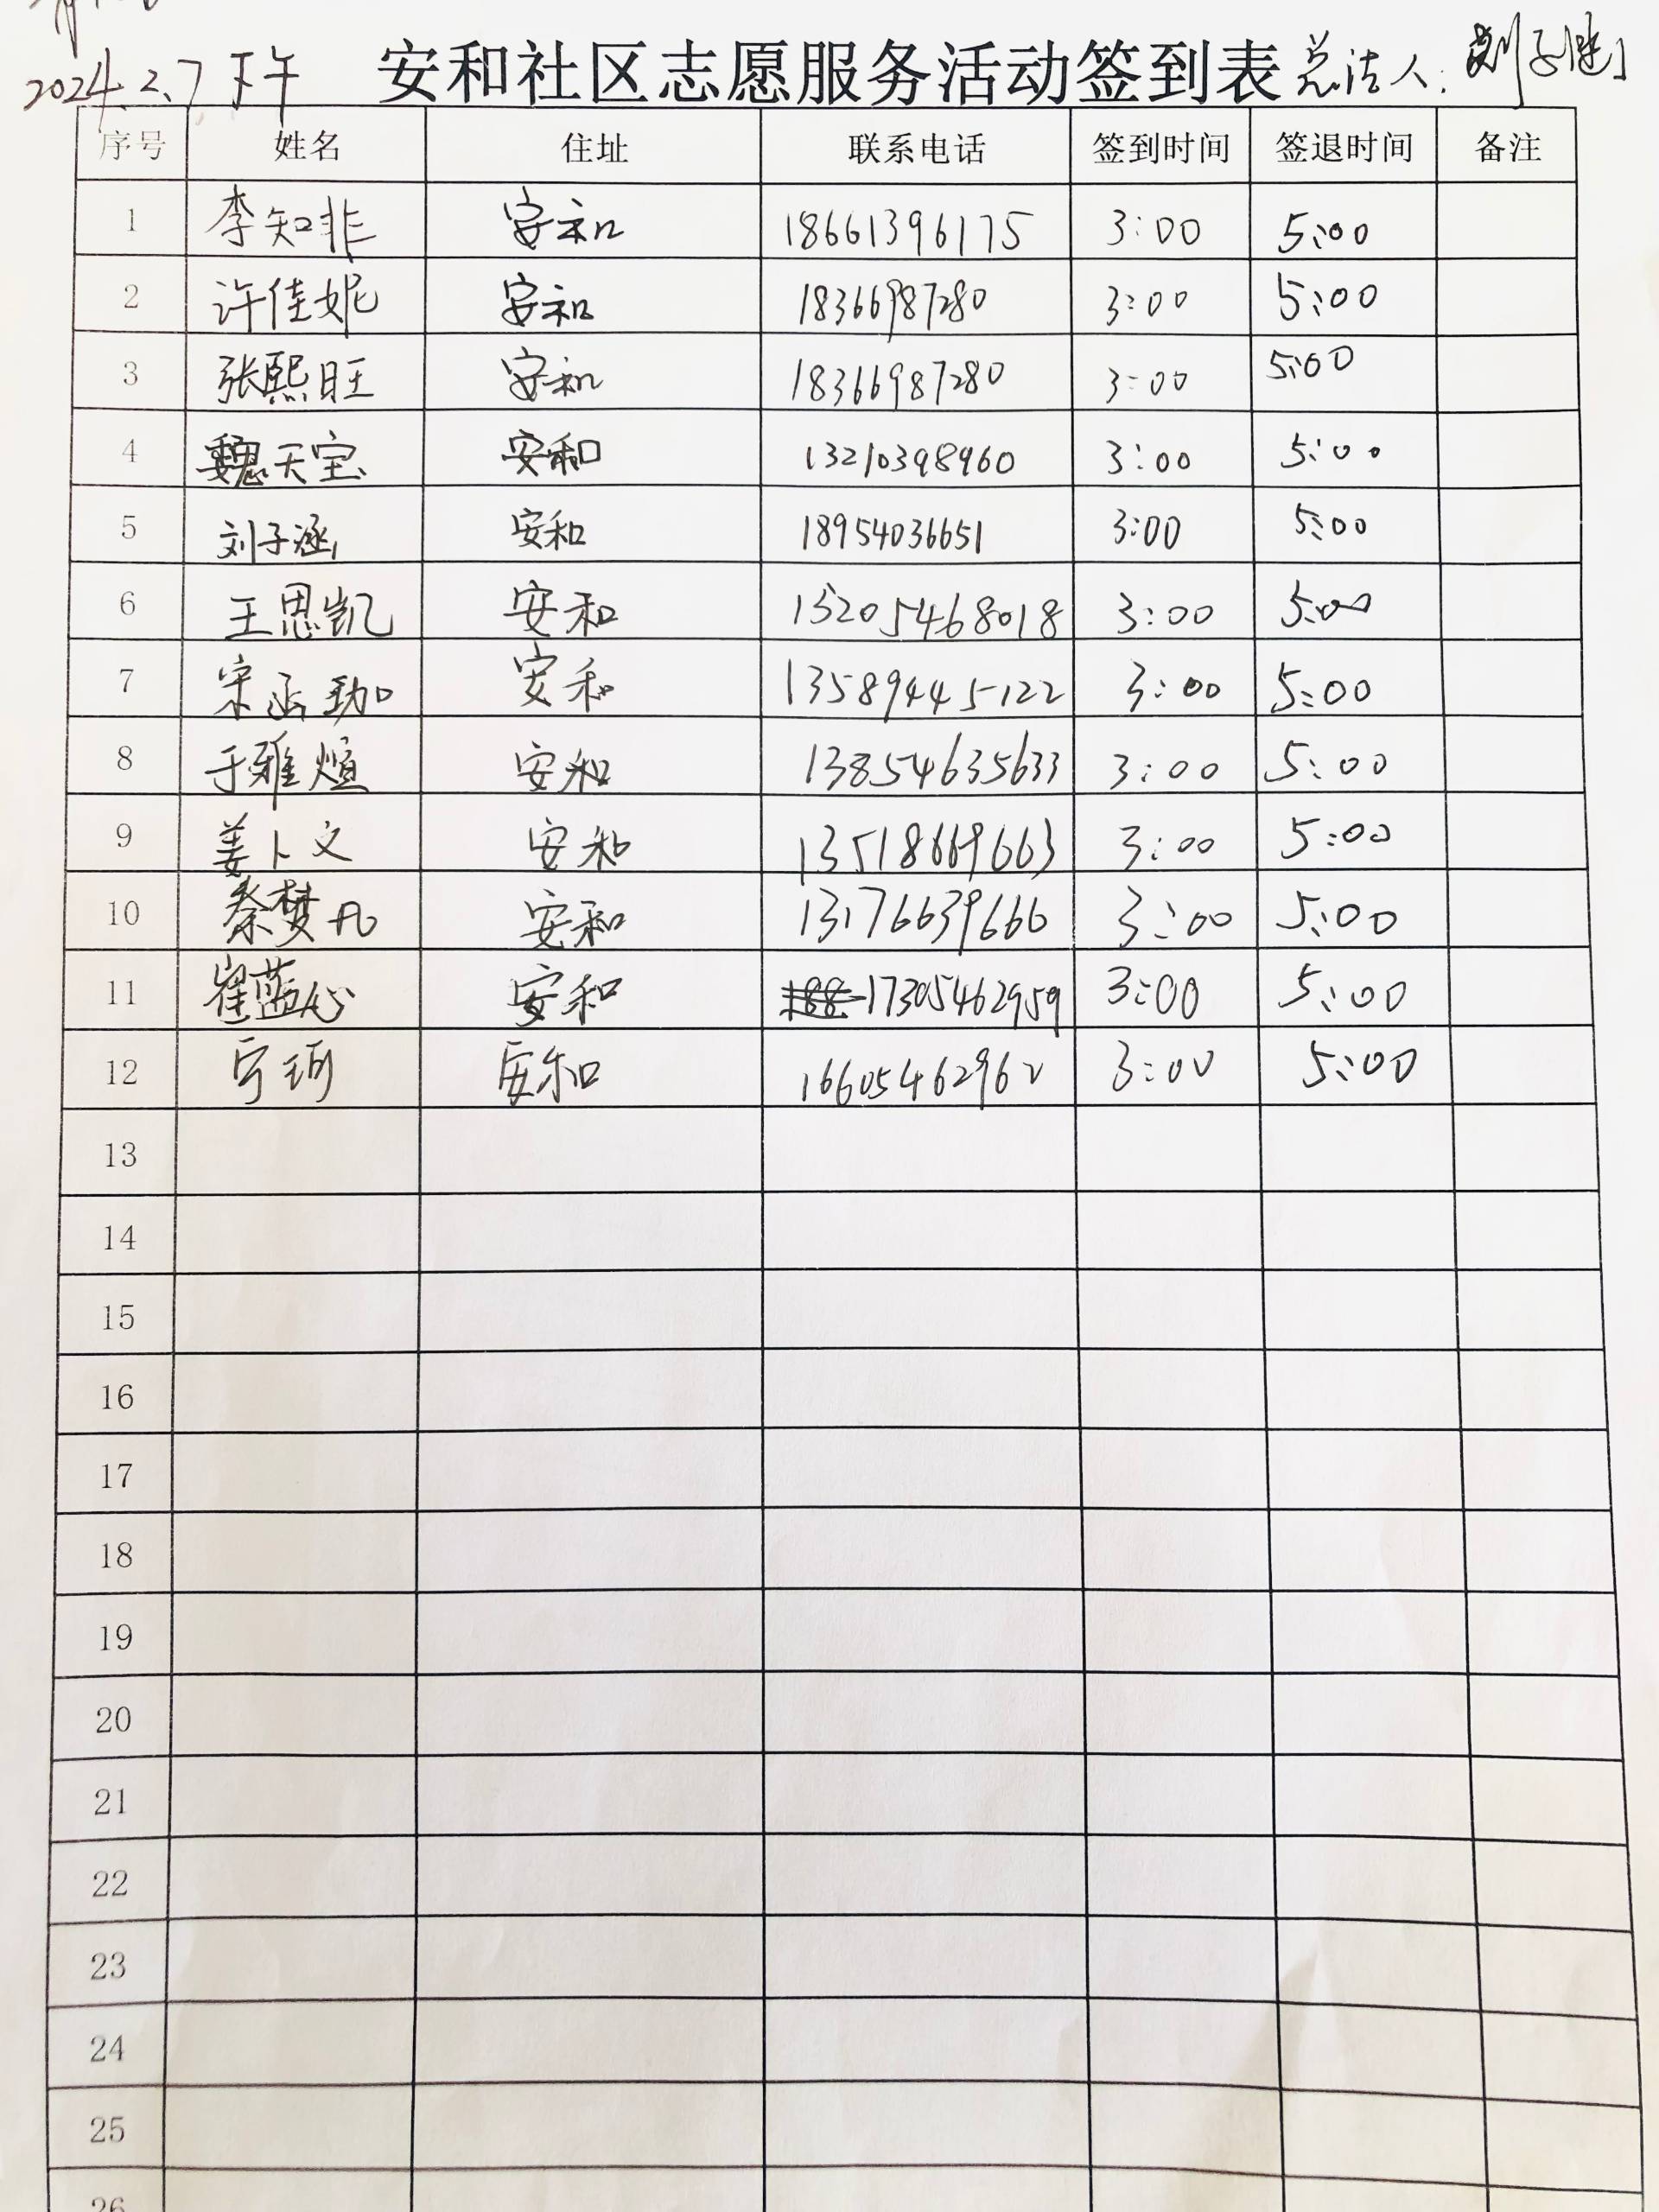 2024.2.7下午 安和社区志愿服务活动签到表 总法人:刘子
序号 姓名 住址 联系电话 签到时间 签退时间 备注
1 李知非 安和 18661396175 3:00 5:00
2 许佳妮 安和 18366987280 3:00 5:00
3 张熙旺 安和 18366987280 3:00 5:00
4 魏天宝 安和 13210398960 3:00 5:00
5 刘子涵 安和 18954036651 3:00 5:00
6 王思凯 安和 15205468018 3:00 5:00
7 宋函劼 安和 13589445122 3:00 5:00
8 于雅煊 安和 13854635633 3:00 5:00
9 姜卜文 安和 13518669663 3:00 5:00
10 秦梦凡 安和 13176639666 3:00 5:00
11 崔蓝心 安和 17305462959 3:00 5:00
12 宁珂 安和 16605462962 3:00 5:00
13
14
15
16
17
18
19
20
21
22
23
24
25
26